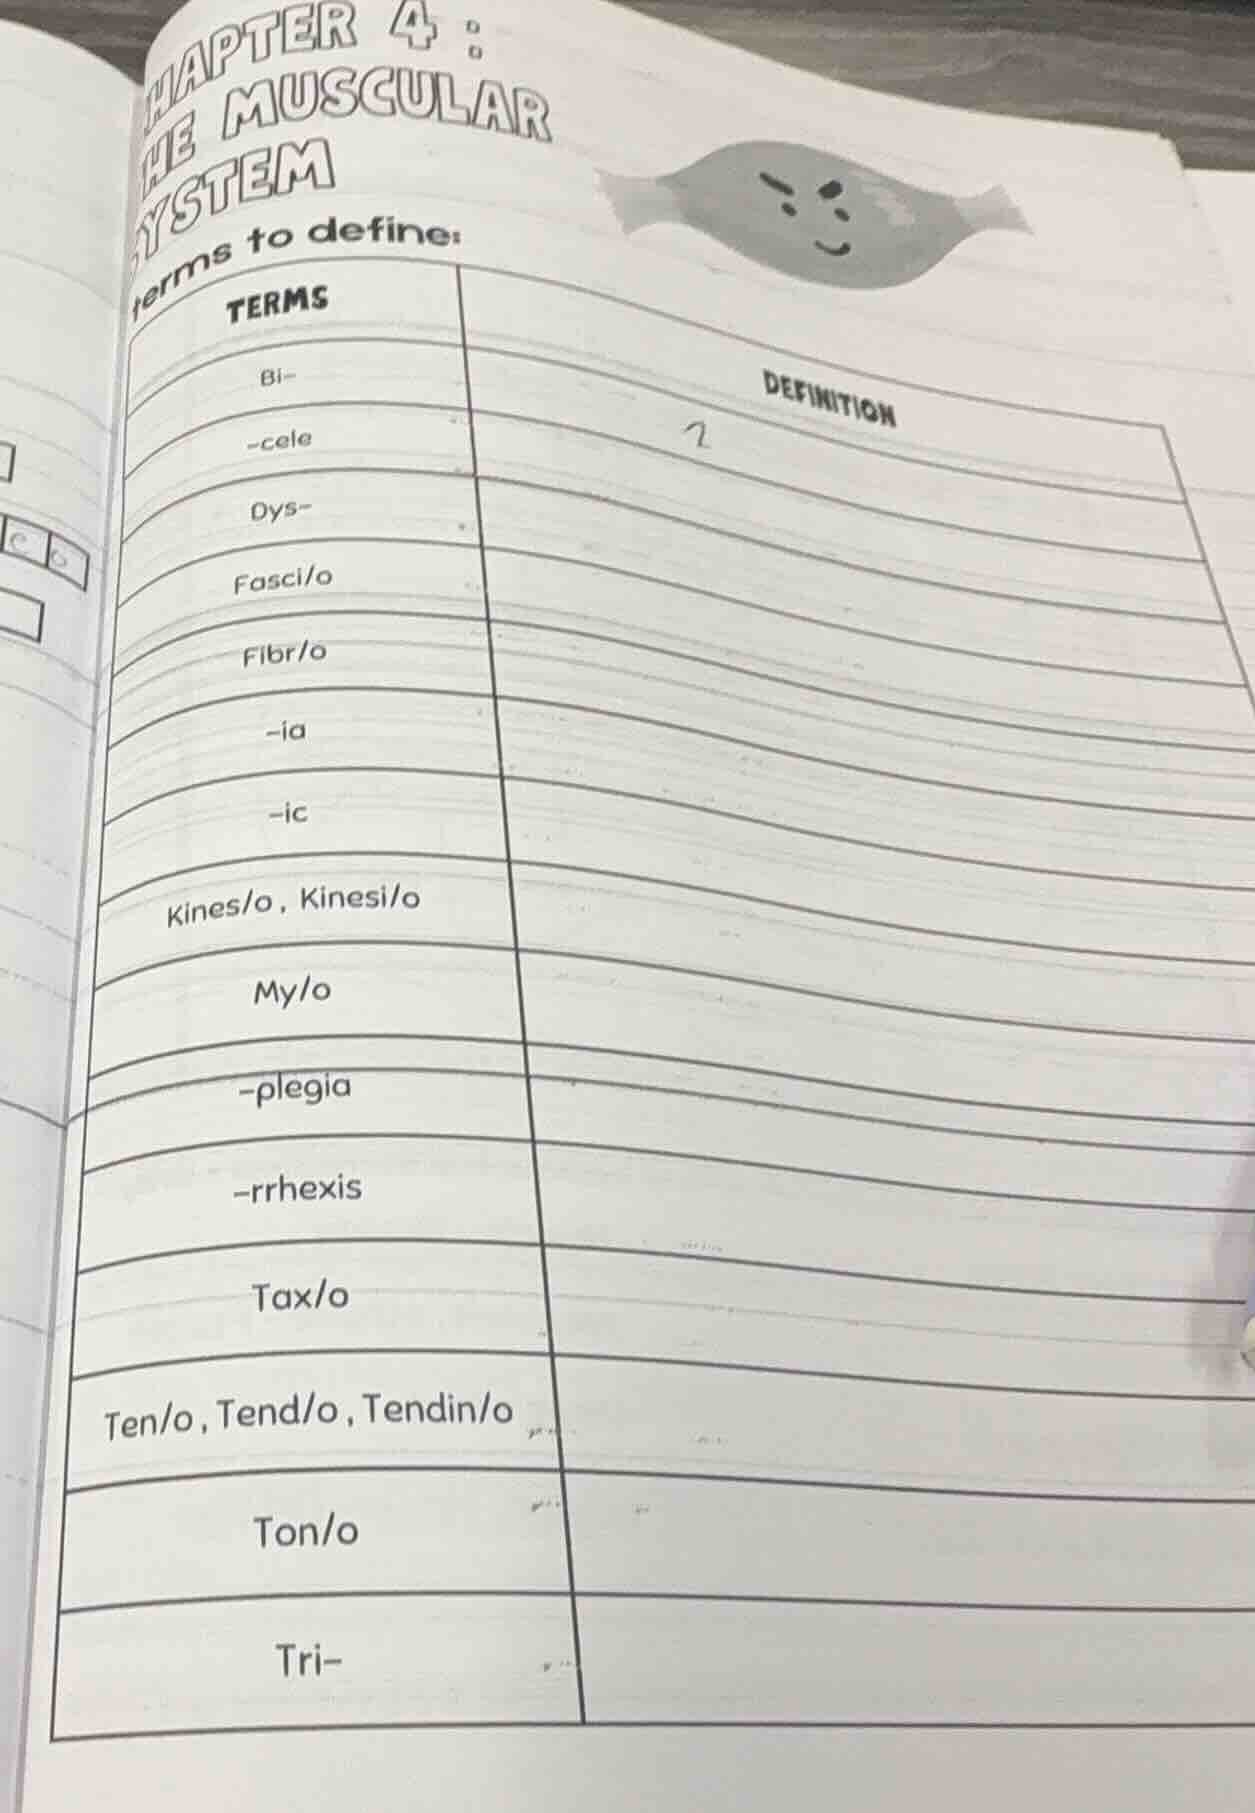 CHAPTER 4:
THE MUSCULAR
SYSTEM
terms to define:
TERMS
DEFINITION
Bi-
2
-cele
Dys-
Fasci/o
Fibr/o
-ia
-ic
Kines/o, Kinesi/o
My/o
-plegia
-rrhexis
Tax/o
Ten/o, Tend/o, Tendin/o
Ton/o
Tri-